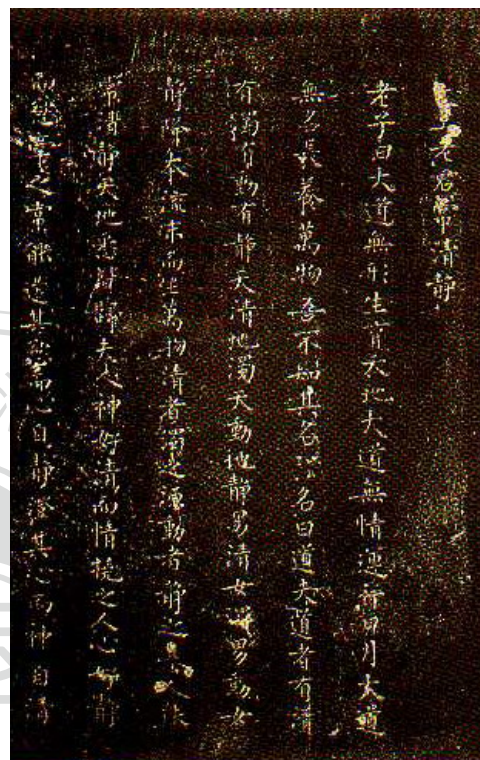 老君常清静
老子曰大道無形生育天地大道無情運行日月大道
無名長養萬物吾不知其名名曰道夫道者有清
有濁有動有静天清地濁天動地静男清女濁男動女
静降本流末而生萬物清者濁之源動者静之人能
常清静天地悉皆歸夫人神好清而情撓之人心好静
而慾牽之常能遣其慾而心自静澄其心而神自清